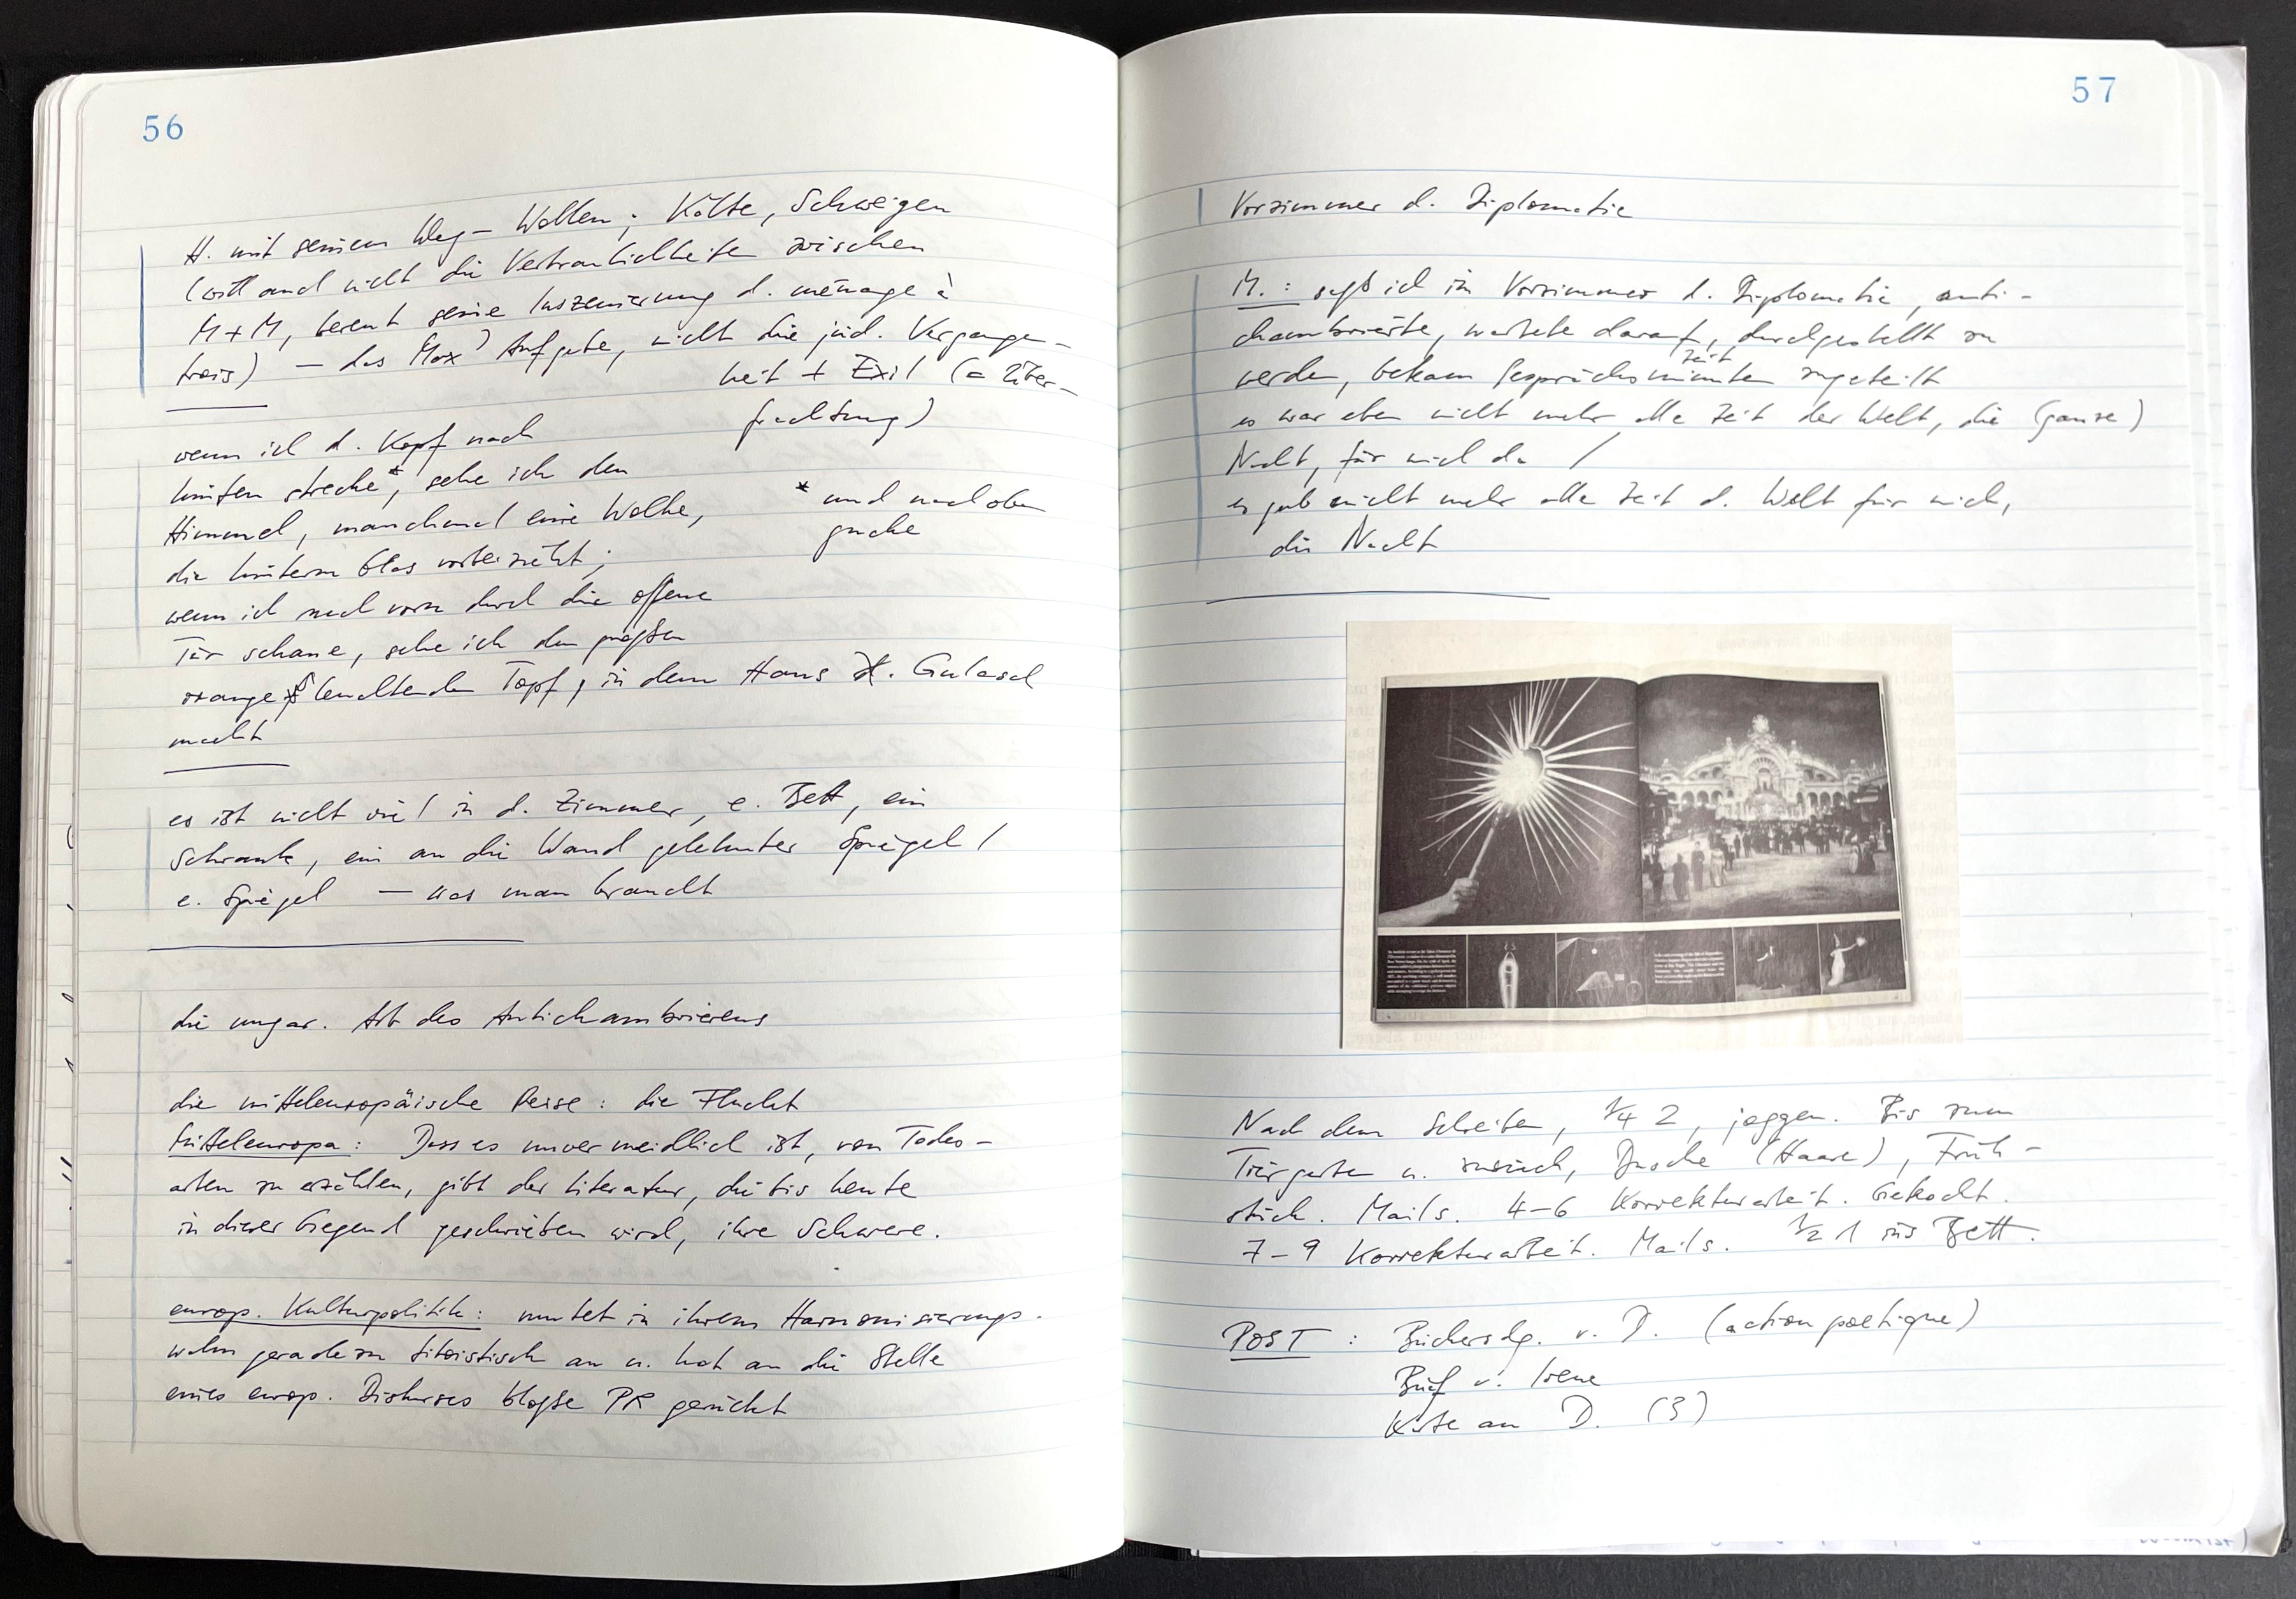 56
H. mit seinem Weg-Wollen; Kälte, Schweigen
(will auch nicht die Vertraulichkeiten zwischen
M + M, bereut seine Inszenierung d. ménage à
trois) — das Max' Aufgabe, nicht die jüd. Vergangen-
heit + Exil (= Über-
frachtung)
wenn ich d. Kopf nach
hinten strecke*, sehe ich den
Himmel, manchmal eine Wolke,
die hinterm Glas vorbeizieht;
* und nach oben
gucke
wenn ich nach vorn durch die offene
Tür schaue, sehe ich den großen
orange leuchtenden Topf, in dem Hans H. Gulasch
macht
es ist nicht viel in d. Zimmer, e. Bett, ein
Schrank, ein an die Wand gelehnter Spiegel /
e. Spiegel — was man braucht
die ungar. Art des Antichambrierens
die mitteleuropäische Reise: die Flucht
Mitteleuropa: Dass es unvermeidlich ist, von Todes-
arten zu erzählen, gibt der Literatur, die bis heute
in dieser Gegend geschrieben wird, ihre Schwere.
europ. Kulturpolitik: mutet in ihrem Harmonisierungs-
wahn geradezu titoistisch an u. hat an die Stelle
eines europ. Diskurses bloße PR gerückt
57
Vorzimmer d. Diplomatie
M.: saß ich im Vorzimmer d. Diplomatie, anti-
chambrierte, wartete darauf, durchgestellt zu
zeit
werden, bekam Gesprächsminuten zugeteilt
es war eben nicht mehr alle Zeit der Welt, die (ganze)
Nacht, für mich da /
es gab nicht mehr alle Zeit d. Welt für mich,
die Nacht
Nach dem Schreiben, 1/4 2, joggen. Bis zum
Tiergarten u. zurück, Dusche (Haare), Früh-
stück. Mails. 4–6 Korrekturarbeit. Gekocht.
7–9 Korrekturarbeit. Mails. 1/2 1 ins Bett.
POST: Büchersdg. v. D. (action poetique)
Brief v. Irene
Karte an D. (3)